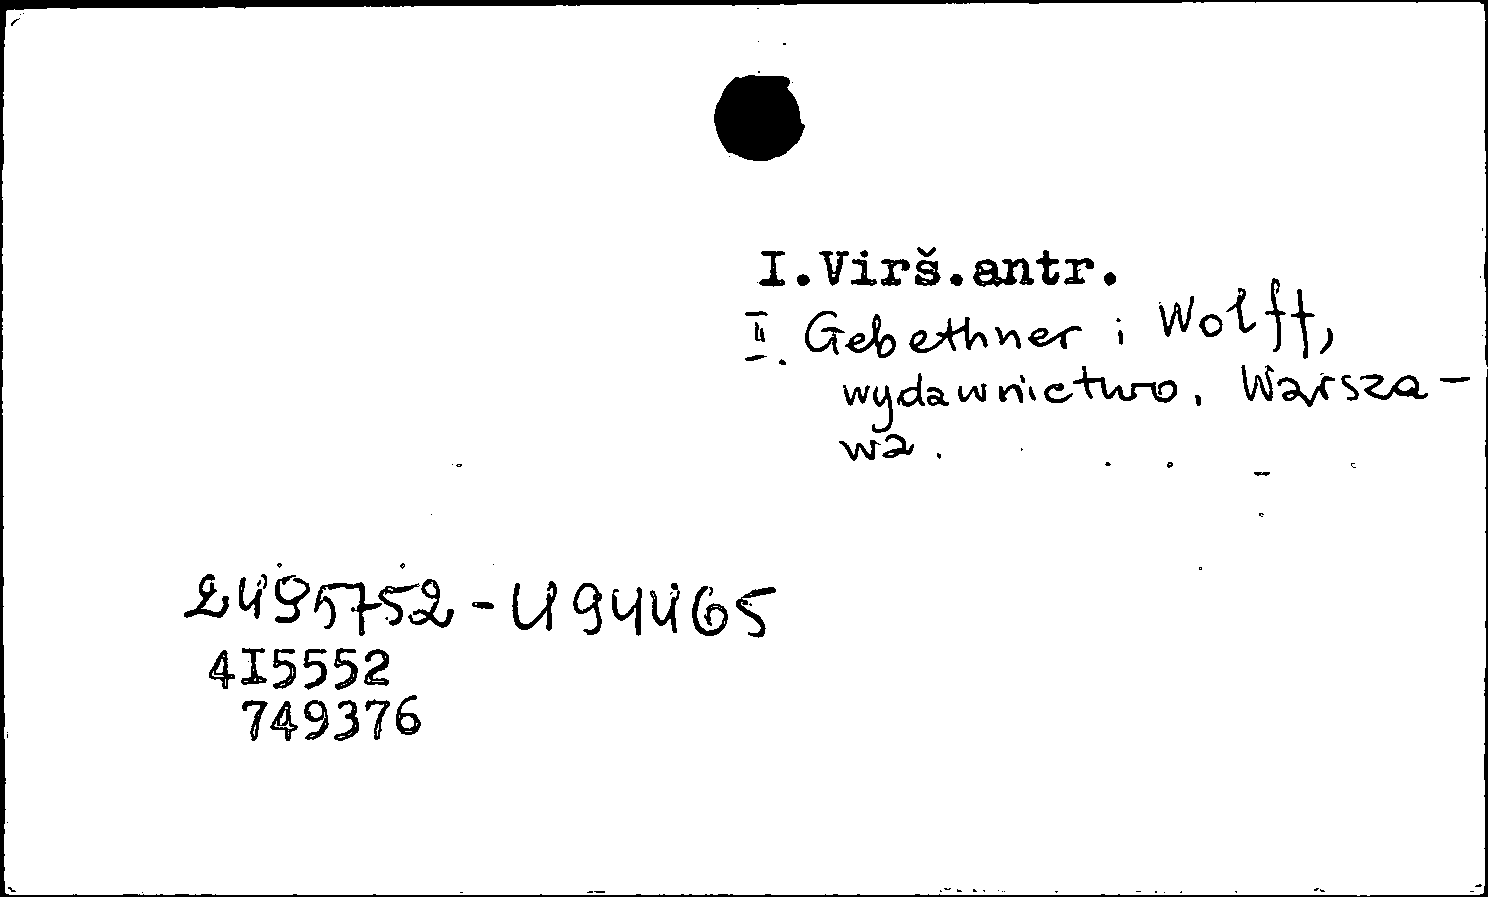 I.Virš.antr.
II. Gebethner i Wolff,
wydawnictwo, Warsza-
wa.
2495752-U94465
4I5552
749376